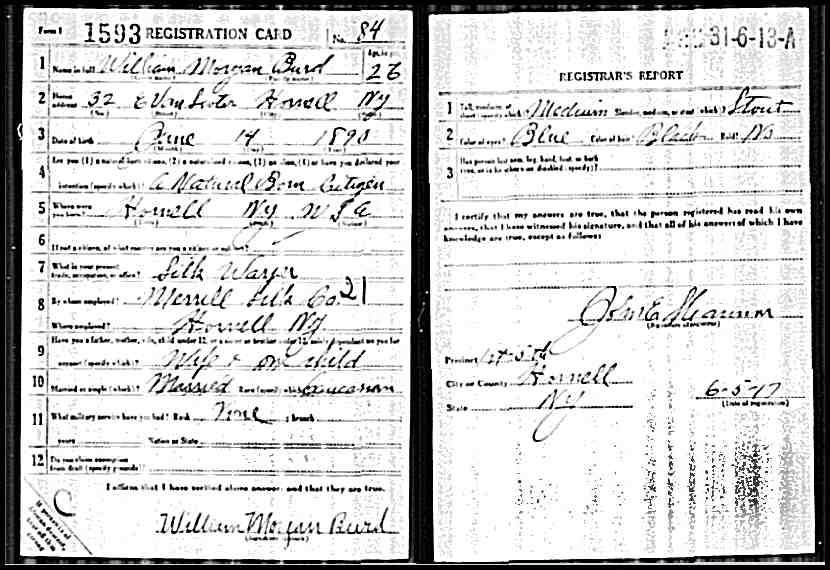 Form 1 1593 REGISTRATION CARD No. 84
1 Name in full William Morgan Burd Age, in yrs. 26
2 Home address 32 E Van Scoter Hornell NY
(No.) (Street) (City) (State)
3 Date of birth June 14 1890
(Month) (Day) (Year)
Are you (1) a natural-born citizen, (2) a naturalized citizen, (3) an alien, (4) or have you declared your
4 intention (specify which)? A Natural Born Citizen
5 Where were you born? Hornell NY U S A
(Town) (State) (Nation)
6 If not a citizen, of what country are you a citizen or subject?
7 What is your present trade, occupation, or office? Silk Warper
8 By whom employed? Merrill Silk Co. 21
Where employed? Hornell NY
Have you a father, mother, wife, child under 12, or a sister or brother under 12, solely dependent on you for
9 support (specify which)? Wife & one child
10 Married or single (which)? Married Race (specify which)? Caucasian
11 What military service have you had? Rank None ; branch
years Nation or State
12 Do you claim exemption from draft (specify grounds)?
I affirm that I have verified above answers and that they are true.
C
William Morgan Burd
(Signature or mark)
31-6-13-A
REGISTRAR'S REPORT
1 Tall, medium, or short (specify which)? Medium Slender, medium, or stout (which)? Stout
2 Color of eyes? Blue Color of hair? Black Bald? No
3 Has person lost arm, leg, hand, foot, or both eyes, or is he otherwise disabled (specify)?
I certify that my answers are true, that the person registered has read his own
answers, that I have witnessed his signature, and that all of his answers of which I have
knowledge are true, except as follows:
John E Shannon
(Signature of registrar)
Precinct 1st 5th
City or County Hornell
State NY
6-5-17
(Date of registration)